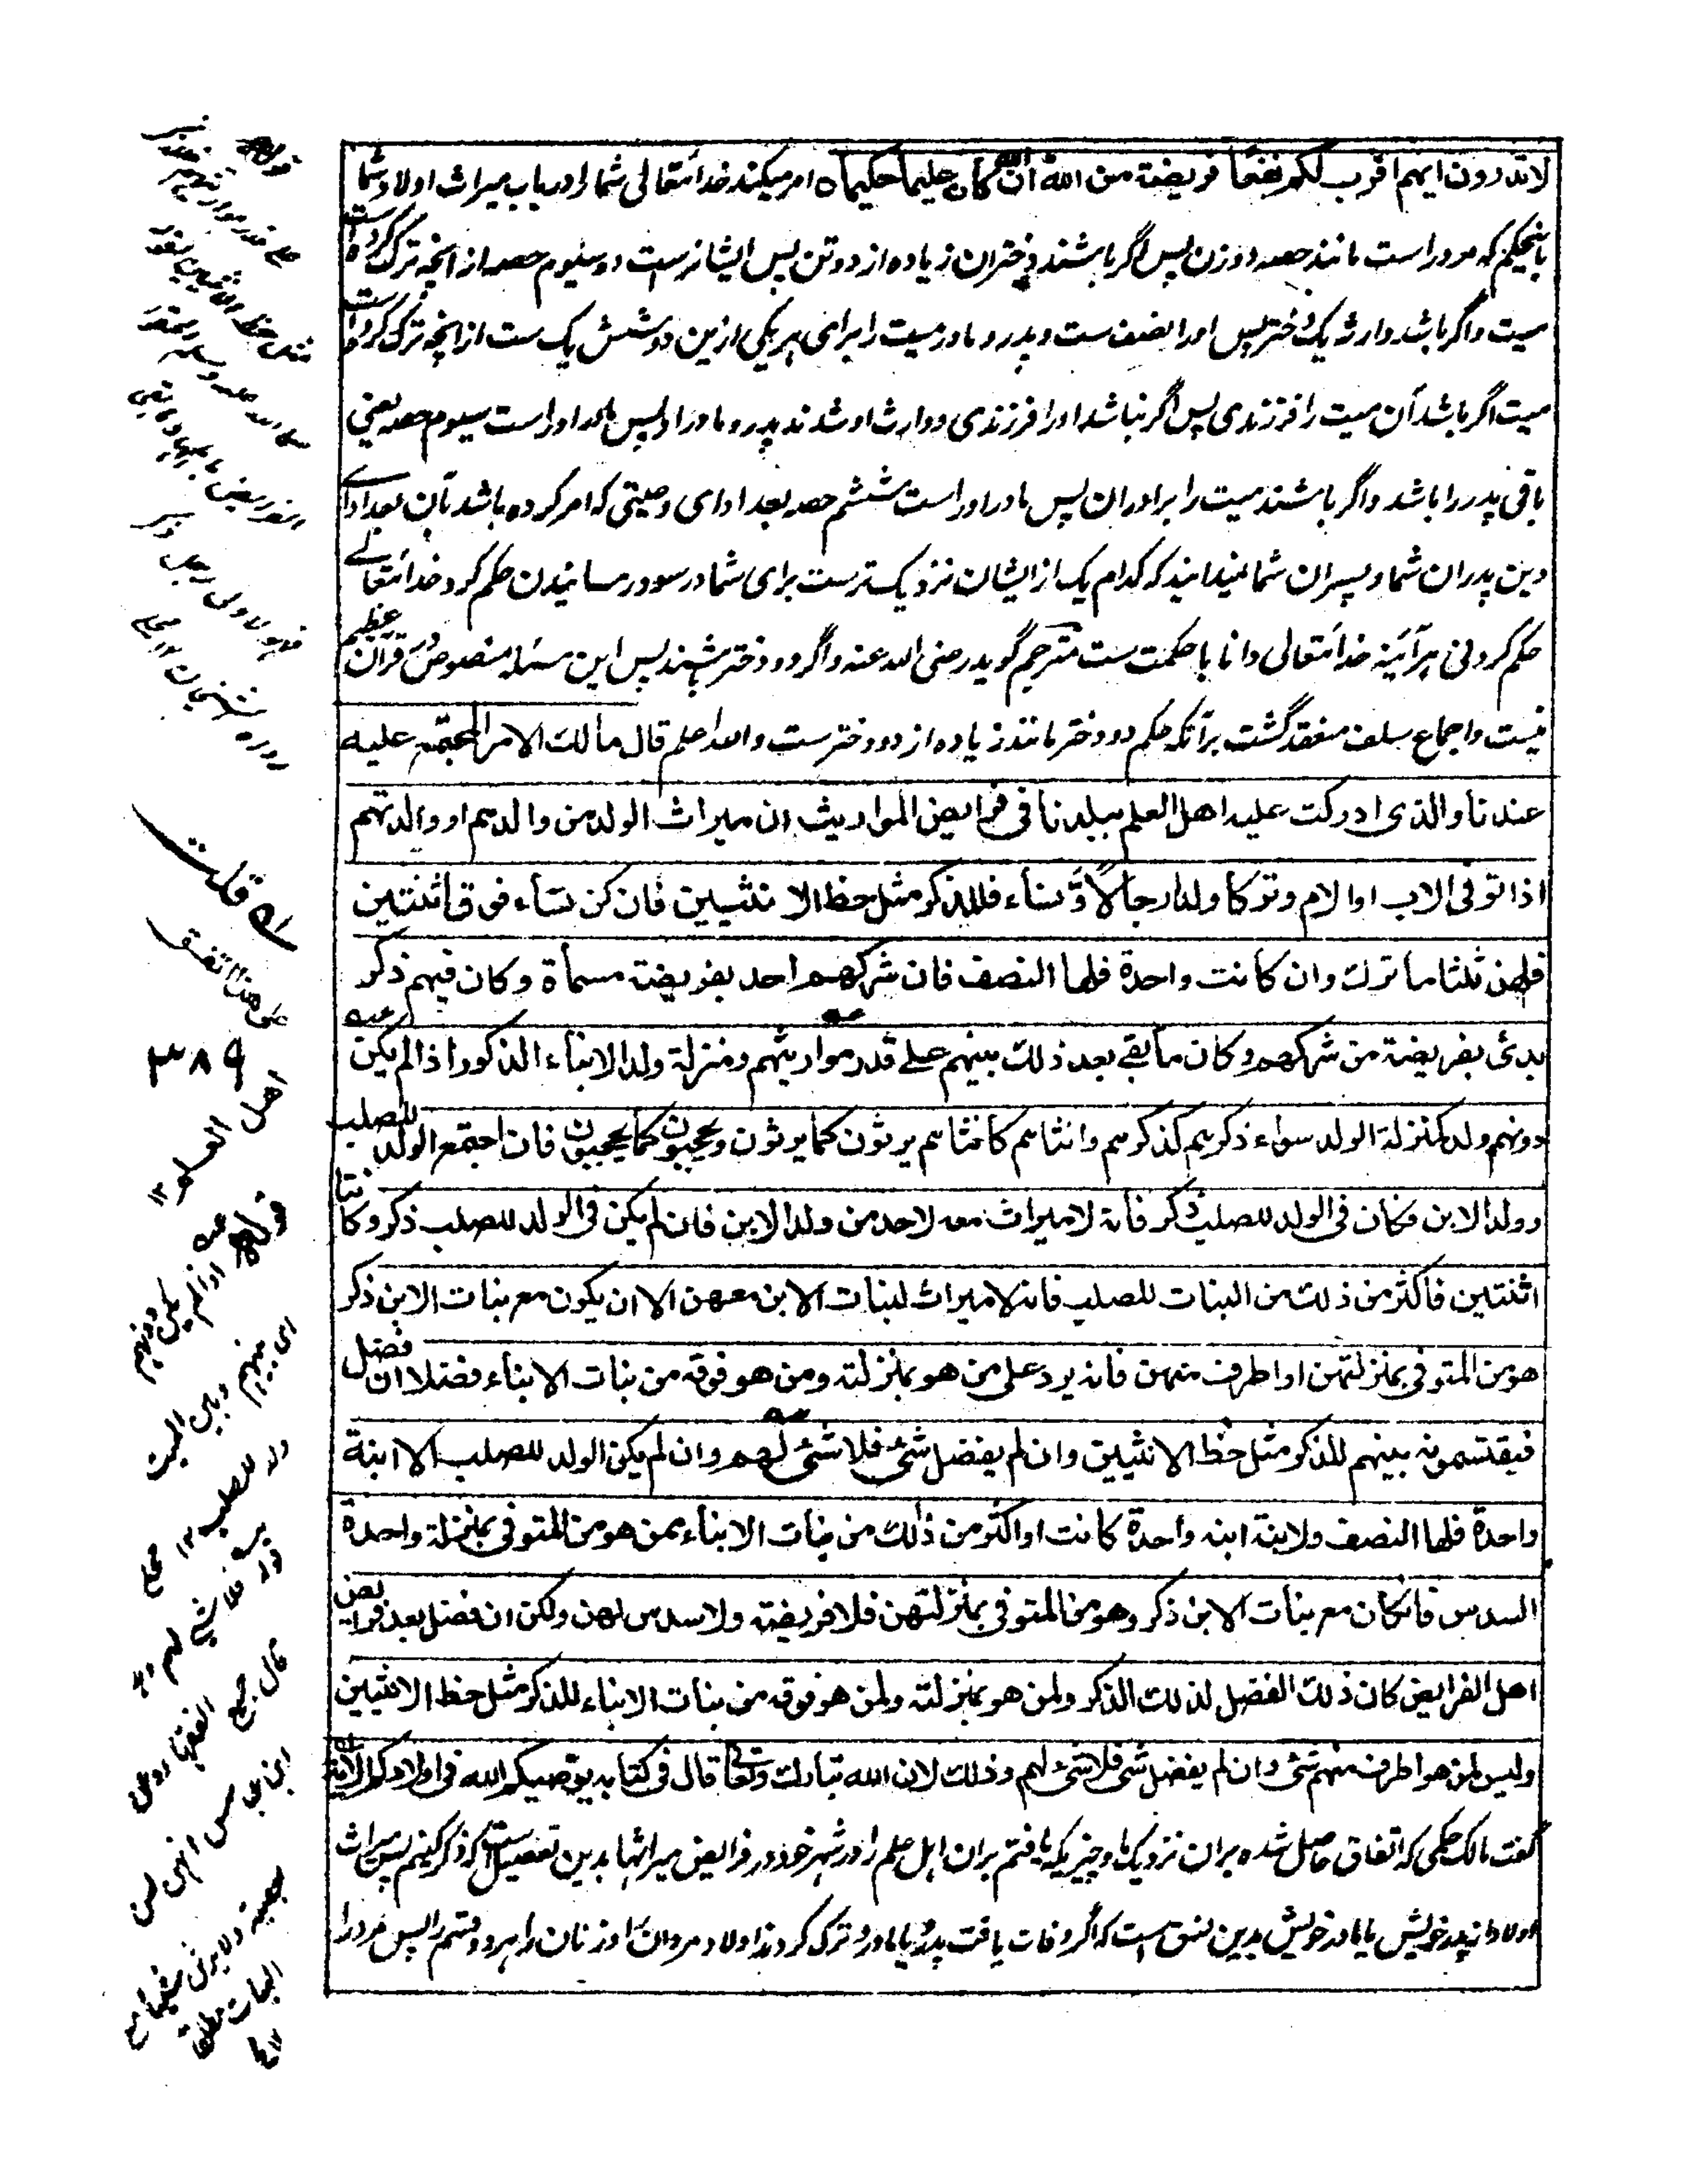 لا تدرون ايهم اقرب لكم نفعا فريضة من الله ان الله كان عليما حكيما ه امر میکند خدا تعالی شما را در باب میراث اولاد شما
باینحکم که مرد راست مانند حصه دو زن پس اگر باشند دختران زیاده از دو تن پس ایشانراست دو سیوم حصه از آنچه ترک کرده است
میت و اگر باشد وارثه یک دختر پس او را نصف ست و پدر و مادر میت را برای هر یکی ازین دو شش یک ست از آنچه ترک کرده است
میت اگر باشد آن میت را فرزندی پس اگر نباشد او را فرزندی و وارث او شدند پدر و مادر او پس مادر او راست سیوم حصه یعنی
باقی پدر را باشد و اگر باشند میت را برادران پس مادر او راست ششم حصه بعد ادای وصیتی که امر کرده باشد بآن بعد ادای
دین پدران شما و پسران شما نمیدانید که کدام یک از ایشان نزدیک ترست برای شما در سود رسانیدن حکم کرد خدا تعالے
حکم کردنی هر آئینه خدا تعالی دانا با حکمت ست مترجم گوید رضی الله عنه و اگر دو دختر باشند پس این مسئله منصوص قرآن عظیم
نیست و اجماع سلف منعقد گشت بر آنکه حکم دو دختر مانند زیاده از دو دختر ست والله اعلم قال مالك الامر المجتمع عليه
عندنا والذى ادركت عليه اهل العلم ببلدنا فى فرايض المواريث ان ميراث الولد من والدهم او والدتهم
اذا توفى الاب او الام وتركا ولدا رجالا ونساء فللذكر مثل حظ الانثيين فان كن نساء فوق اثنتين
فلهن ثلثا ما ترك وان كانت واحدة فلها النصف فان شركهم احد بفريضة مسماة وكان فيهم ذكر
بدئ بفريضة من شركهم وكان ما بقے بعد ذلك بينهم علے قدر مواريثهم ومنزلة ولد الابناء الذكور اذا لم يكن
دونهم ولد كمنزلة الولد سواء ذكرهم كذكرهم وانثاهم كانثاهم يرثون كما يرثون ويحجبون كما يحجبون فان اجتمع الولد للصلب
وولد الابن فكان فى الولد للصلب ذكر فانه لا ميراث معه لاحد من ولد الابن فان لم يكن فى الولد للصلب ذكر وكانتا
اثنتين فاكثر من ذلك من البنات للصلب فانه لا ميراث لبنات الابن معهن الا ان يكون مع بنات الابن ذكر
هو من المتوفى بمنزلتهن او اطرف منهن فانه يرد على من هو بمنزلته ومن هو فوقه من بنات الابناء فضلا ان فضل
فيقتسمونه بينهم للذكر مثل حظ الانثيين وان لم يفضل شئ فلا شئ لهم وان لم يكن الولد للصلب الا ابنة
واحدة فلها النصف ولابنة ابنه واحدة كانت او اكثر من ذلك من بنات الابناء ممن هو من المتوفى بمنزلة واحدة
السدس فان كان مع بنات الابن ذكر وهو من المتوفى بمنزلتهن فلا فريضة ولا سدس لهن ولكن ان فضل بعد فرايض
اهل الفرايض كان ذلك الفضل لذلك الذكر ولمن هو بمنزلته ولمن هو فوقه من بنات الابناء للذكر مثل حظ الانثيين
وليس لمن هو اطرف منهم شئ وان لم يفضل شئ فلا شئ لهم وذلك لان الله تبارك وتعالى قال فى كتابه يوصيكم الله فى اولادكم الآية
گفت مالک حکمی که اتفاق حاصل شده بران نزدیک ما و چیزیکه یافتم بران اهل علم را در شهر خود در فرایض میراثها بدین تفصیل ست که ذکر کنیم پس میراث
اولاد از پدر خویش یا مادر خویش بدین نسق است که اگر وفات یافت پدر یا مادر و ترک کردند اولاد مردان و زنان را هر دو قسم را پس مرد را
قلت
على هذا اتفق
اهل العلم ١٢
قوله اذا لم يكن دونهم
اى بينهم وبين الميت
ولد للصلب ١٢ محلى
قوله فلا شئ لهم
قال جميع الفقهاء